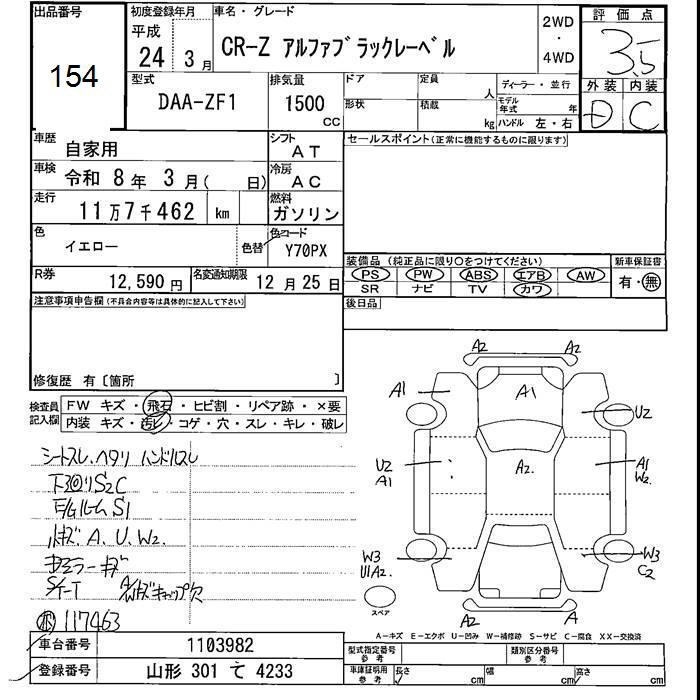 出品番号
154
初度登録年月
平成
24 3月
車名・グレード
CR-Z アルファブラックレーベル
2WD
・
4WD
評価点
3.5
外装 内装
D C
型式
DAA-ZF1
排気量
1500
CC
ドア
形状
定員
人
積載
kg
ディーラー・並行
モデル年式 年
ハンドル 左・右
車歴
自家用
シフト
AT
車検
令和 8年 3月( 日)
冷房
AC
走行
11万7千462 km
燃料
ガソリン
色
イエロー
色替
色コード
Y70PX
R券
12,590円
名変通知期限
12月25日
セールスポイント(正常に機能するものに限ります)
装備品(純正品に限り○をつけてください)
PS PW ABS エアB AW
SR ナビ TV カワ
新車保証書
有・無
後日品
注意事項申告欄(不具合内容等は具体的に記入して下さい)
修復歴 有〔箇所 〕
検査員
記入欄
FW キズ・飛石・ヒビ割・リペア跡・×要
内装 キズ・汚レ・コゲ・穴・スレ・キレ・破レ
シートスレ、ヘタリ ハンドルスレ
下回リS2C
E/GルームS1
A.U.W2
S/F-T
キャップ欠
117463
A2 A2
A1 A1
U2
U2 A2. A1
A1 W2
W3 W3
U1A2. C2
スペア
A2 A
A-キズ E-エクボ U-凹み W-補修跡 S-サビ C-腐食 XX-交換済
車台番号
1103982
登録番号
山形 301 て 4233
型式指定番号
参考
類別区分番号
参考
車庫証明用
参考
長さ cm 幅 cm 高さ cm